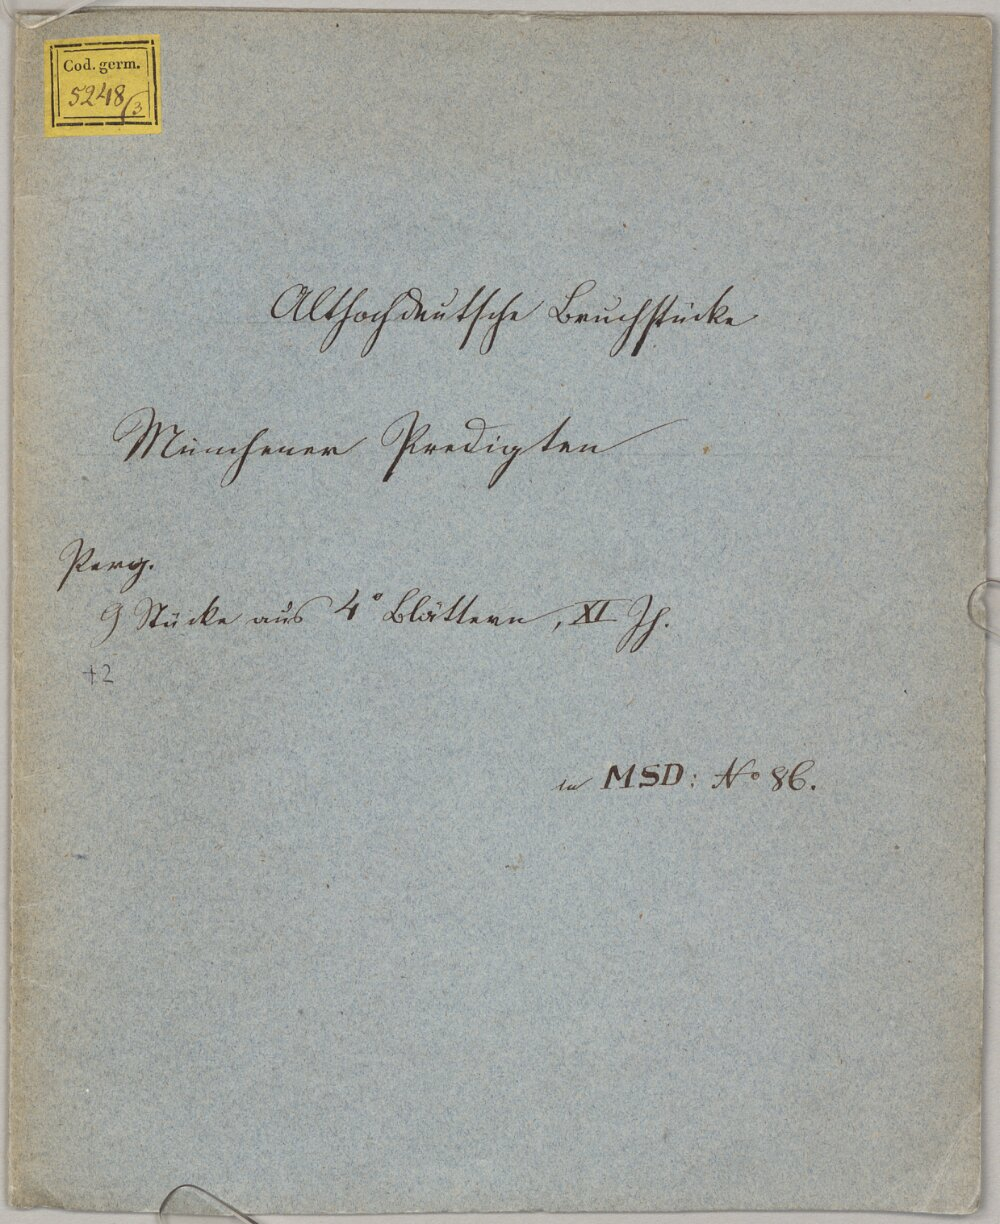 Cod. germ.
5248/3
Althochdeutsche Bruchstücke
Münchener Predigten
Perg.
9 Stücke aus 4° Blättern, XI Jh.
+2
in MSD: No 86.